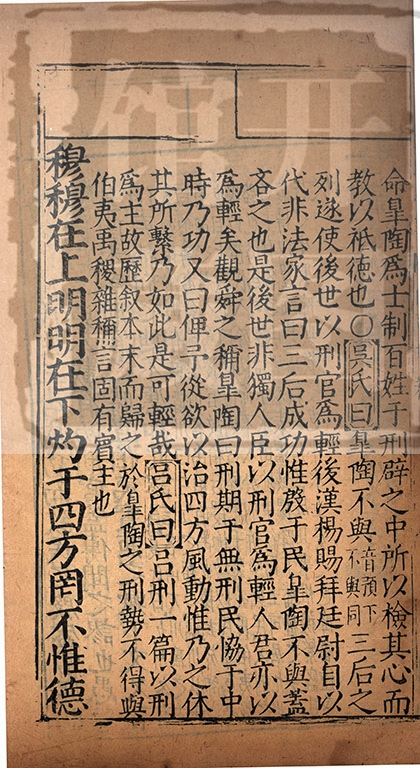 命臯陶爲士制百姓于刑辟之中所以檢其心而
教以祗德也○吳氏曰臯陶不與音預下不與同三后之
列遂使後世以刑官爲輕後漢楊賜拜廷尉自以
代非法家言曰三后成功惟殷于民臯陶不與蓋
吝之也是後世非獨人臣以刑官爲輕人君亦以
爲輕矣觀舜之稱臯陶曰刑期于無刑民恊于中
時乃功又曰俾予從欲以治四方風動惟乃之休
其所繫乃如此是可輕哉呂氏曰呂刑一篇以刑
爲主故歷叙本末而歸之於臯陶之刑勢不得與
伯夷禹稷雜稱言固有賓主也
穆穆在上明明在下灼于四方罔不惟德